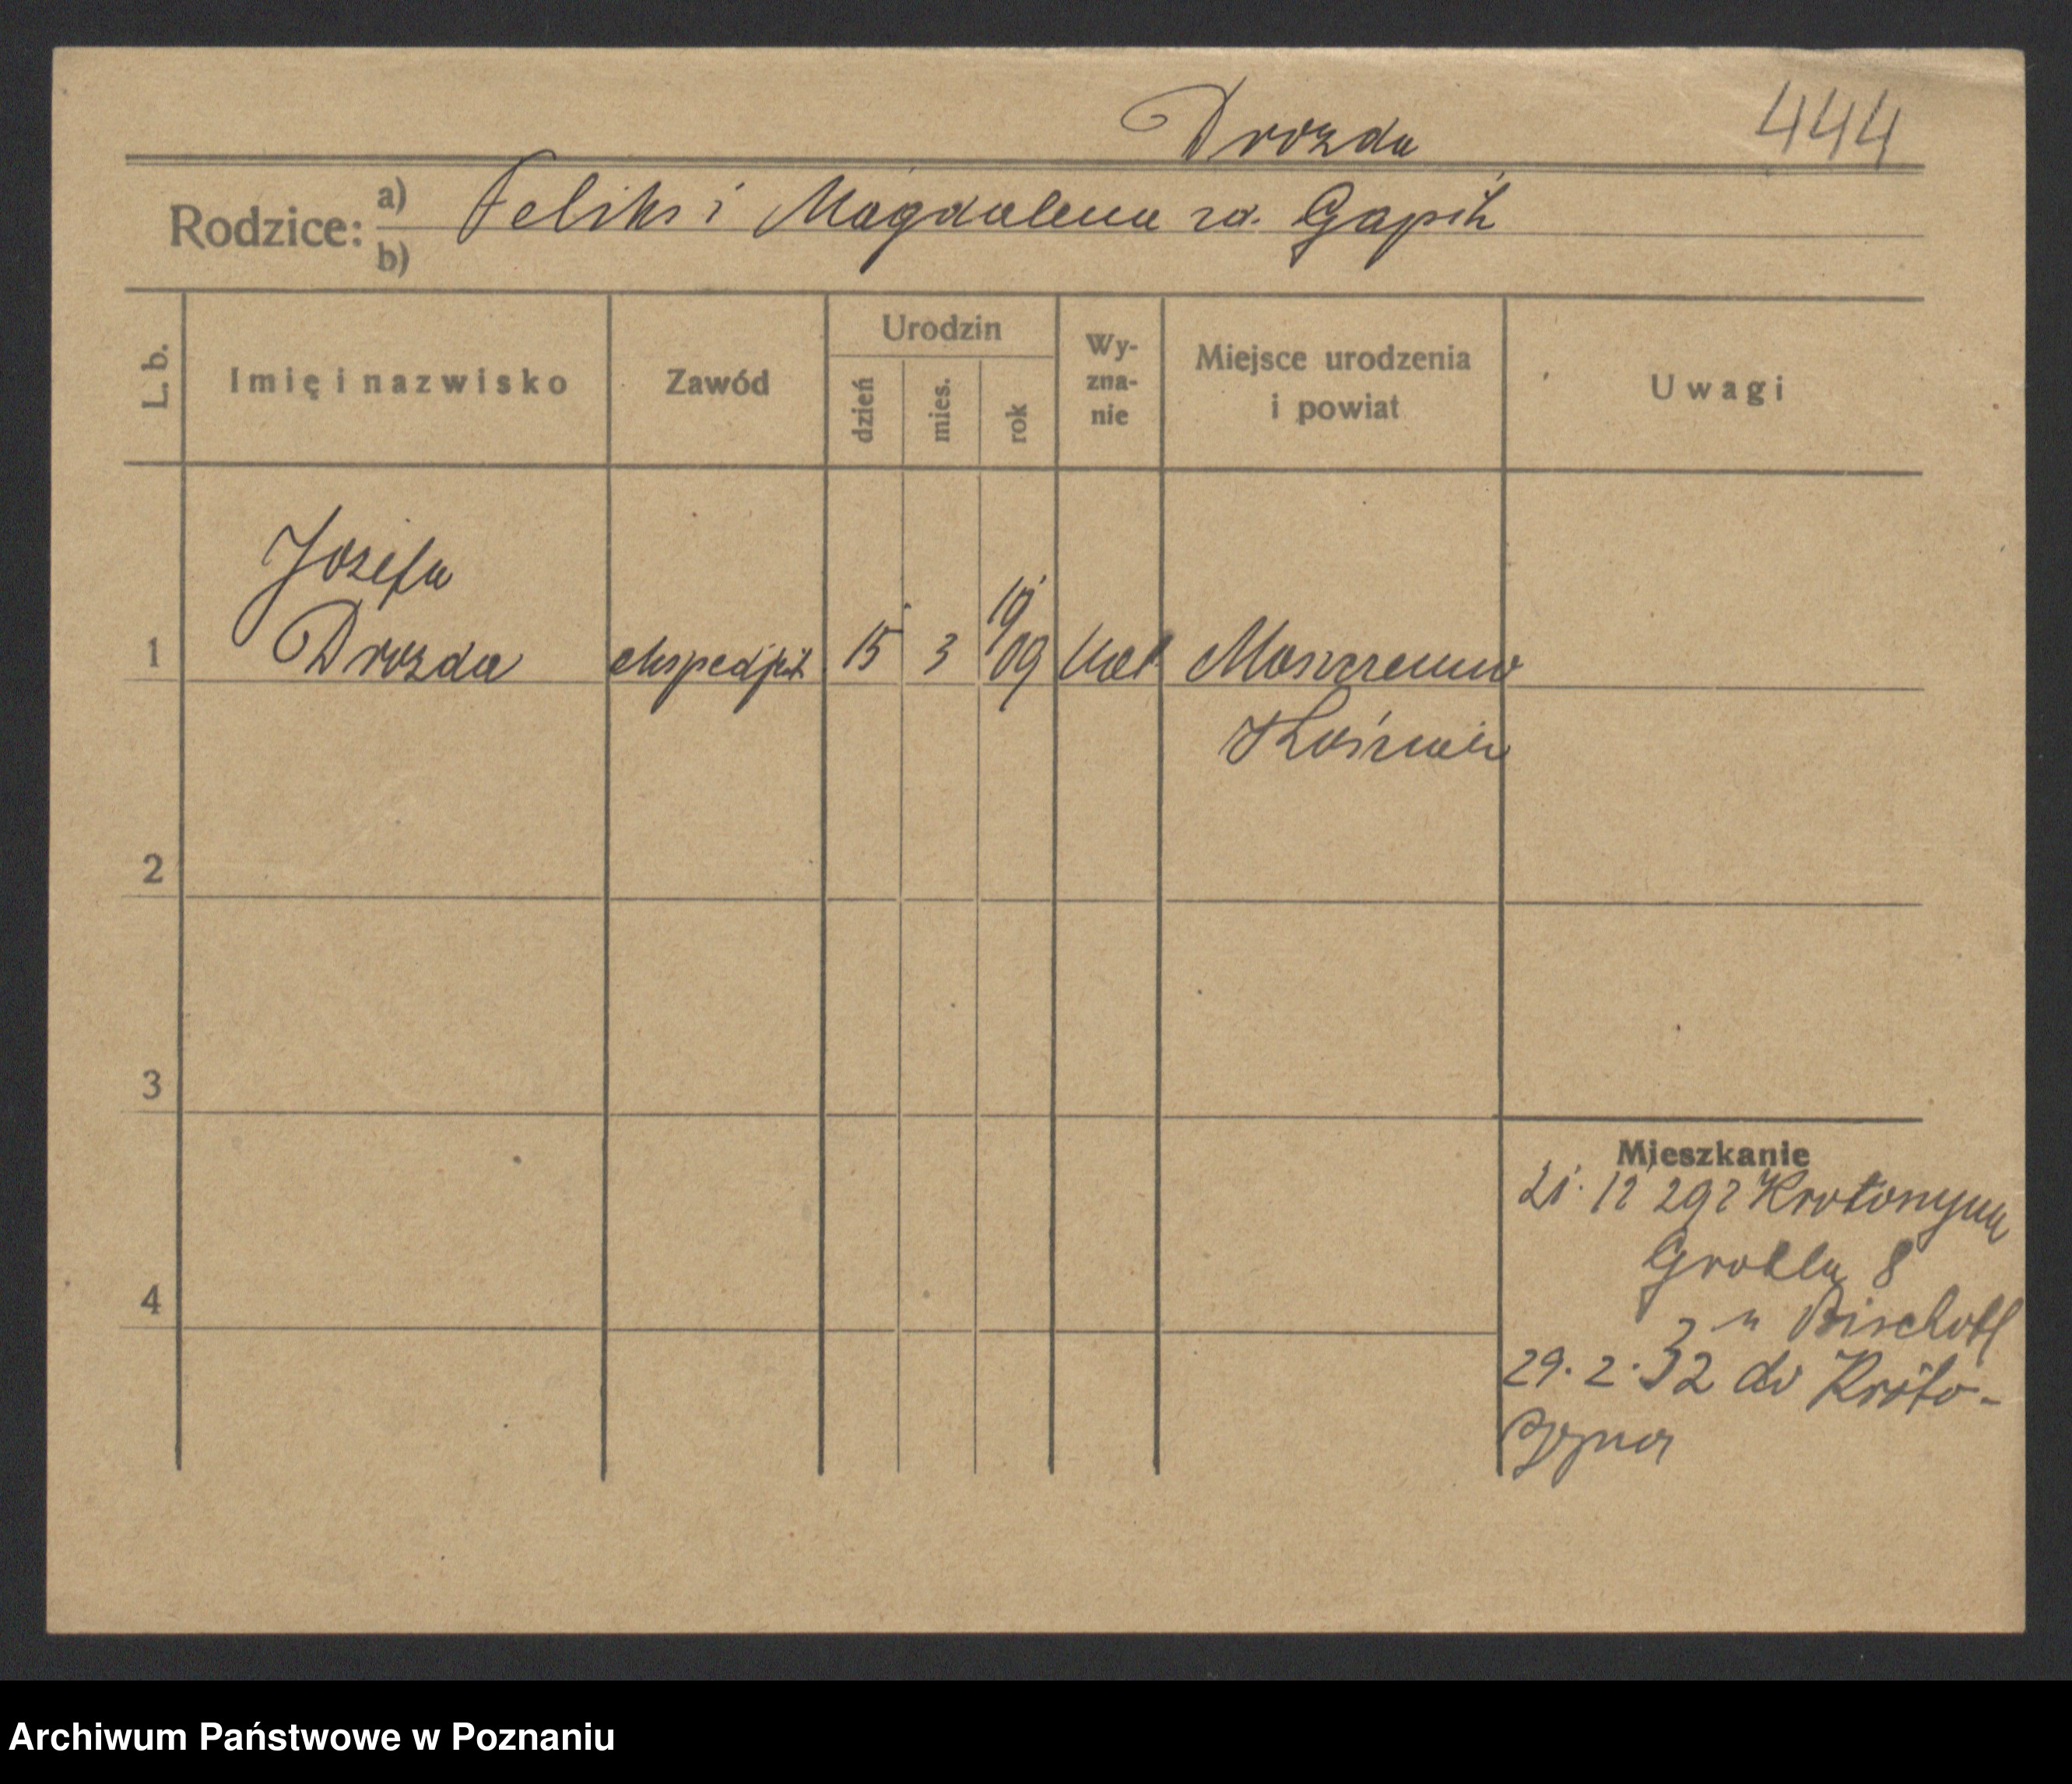 Drozda 444
Rodzice: a) Feliks i Magdalena zd. Gapik
b)
L. b. Imię i nazwisko Zawód Urodzin dzień mies. rok Wy-zna-nie Miejsce urodzenia i powiat Uwagi
Józefa
1 Drozda ekspedjent 15 3 19/09 kat
2
3
Mieszkanie
21. 12 29 z Krotoszyna
4 Grobla 8
u Bischoff
29. 2. 32 do Kroto-
szyna
Archiwum Państwowe w Poznaniu